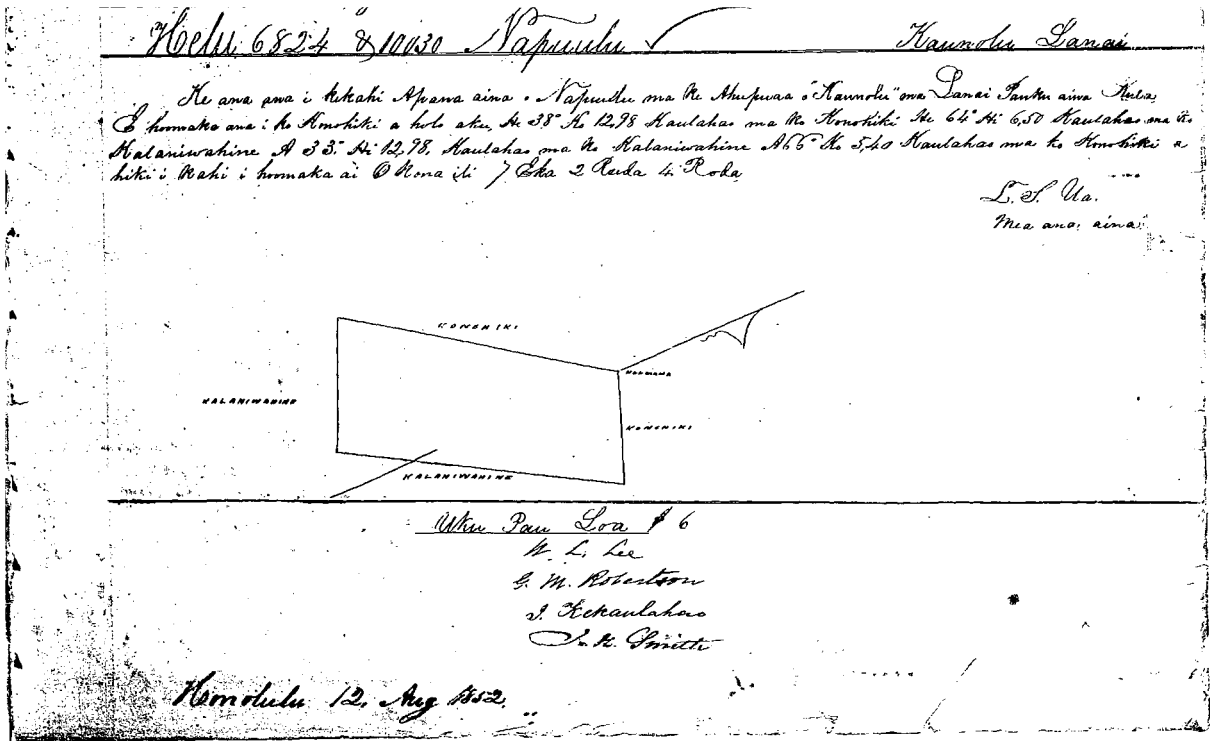 Helu 6824 & 10030 Napuulu Kaunolu Lanai
He ana ana i kekahi Apana aina o Napuulu ma ke Ahupuaa o "Kaunolu" ma Lanai Pauku aina Kula,
E hoomaka ana i ko Konohiki a holo aku, He 38° Ko 12,98 Kaulahao ma ko Konohiki He 64° Hi 6,50 Kaulahao ma ko
Kalaniwahine A 33° Hi 12,98, Kaulahao ma ko Kalaniwahine A 66° Ko 5,40 Kaulahao ma ko Konohiki a
hiki i kahi i hoomaka ai O Kona ili 7 Eka 2 Ruda 4 Roda
L. S. Ua.
Mea ana aina
KONOHIKI
KALANIWAHINE
KONOHIKI
KALANIWAHINE
Uku Pau Loa $ 6
W. L. Lee
G. M. Robertson
J. Kekaulahao
J. H. Smith
Honolulu 12, Aug 1852.